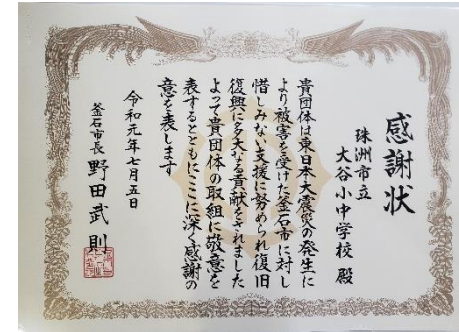 感謝状
珠洲市立
大谷小中学校 殿
貴団体は東日本大震災の発生に
より被害を受けた釜石市に対し
惜しみない支援に努められ復旧
復興に多大なる貢献をされました
よって貴団体の取組に敬意を
表するとともにここに深く感謝の
意を表します
令和元年七月五日
釜石市長 野田武則